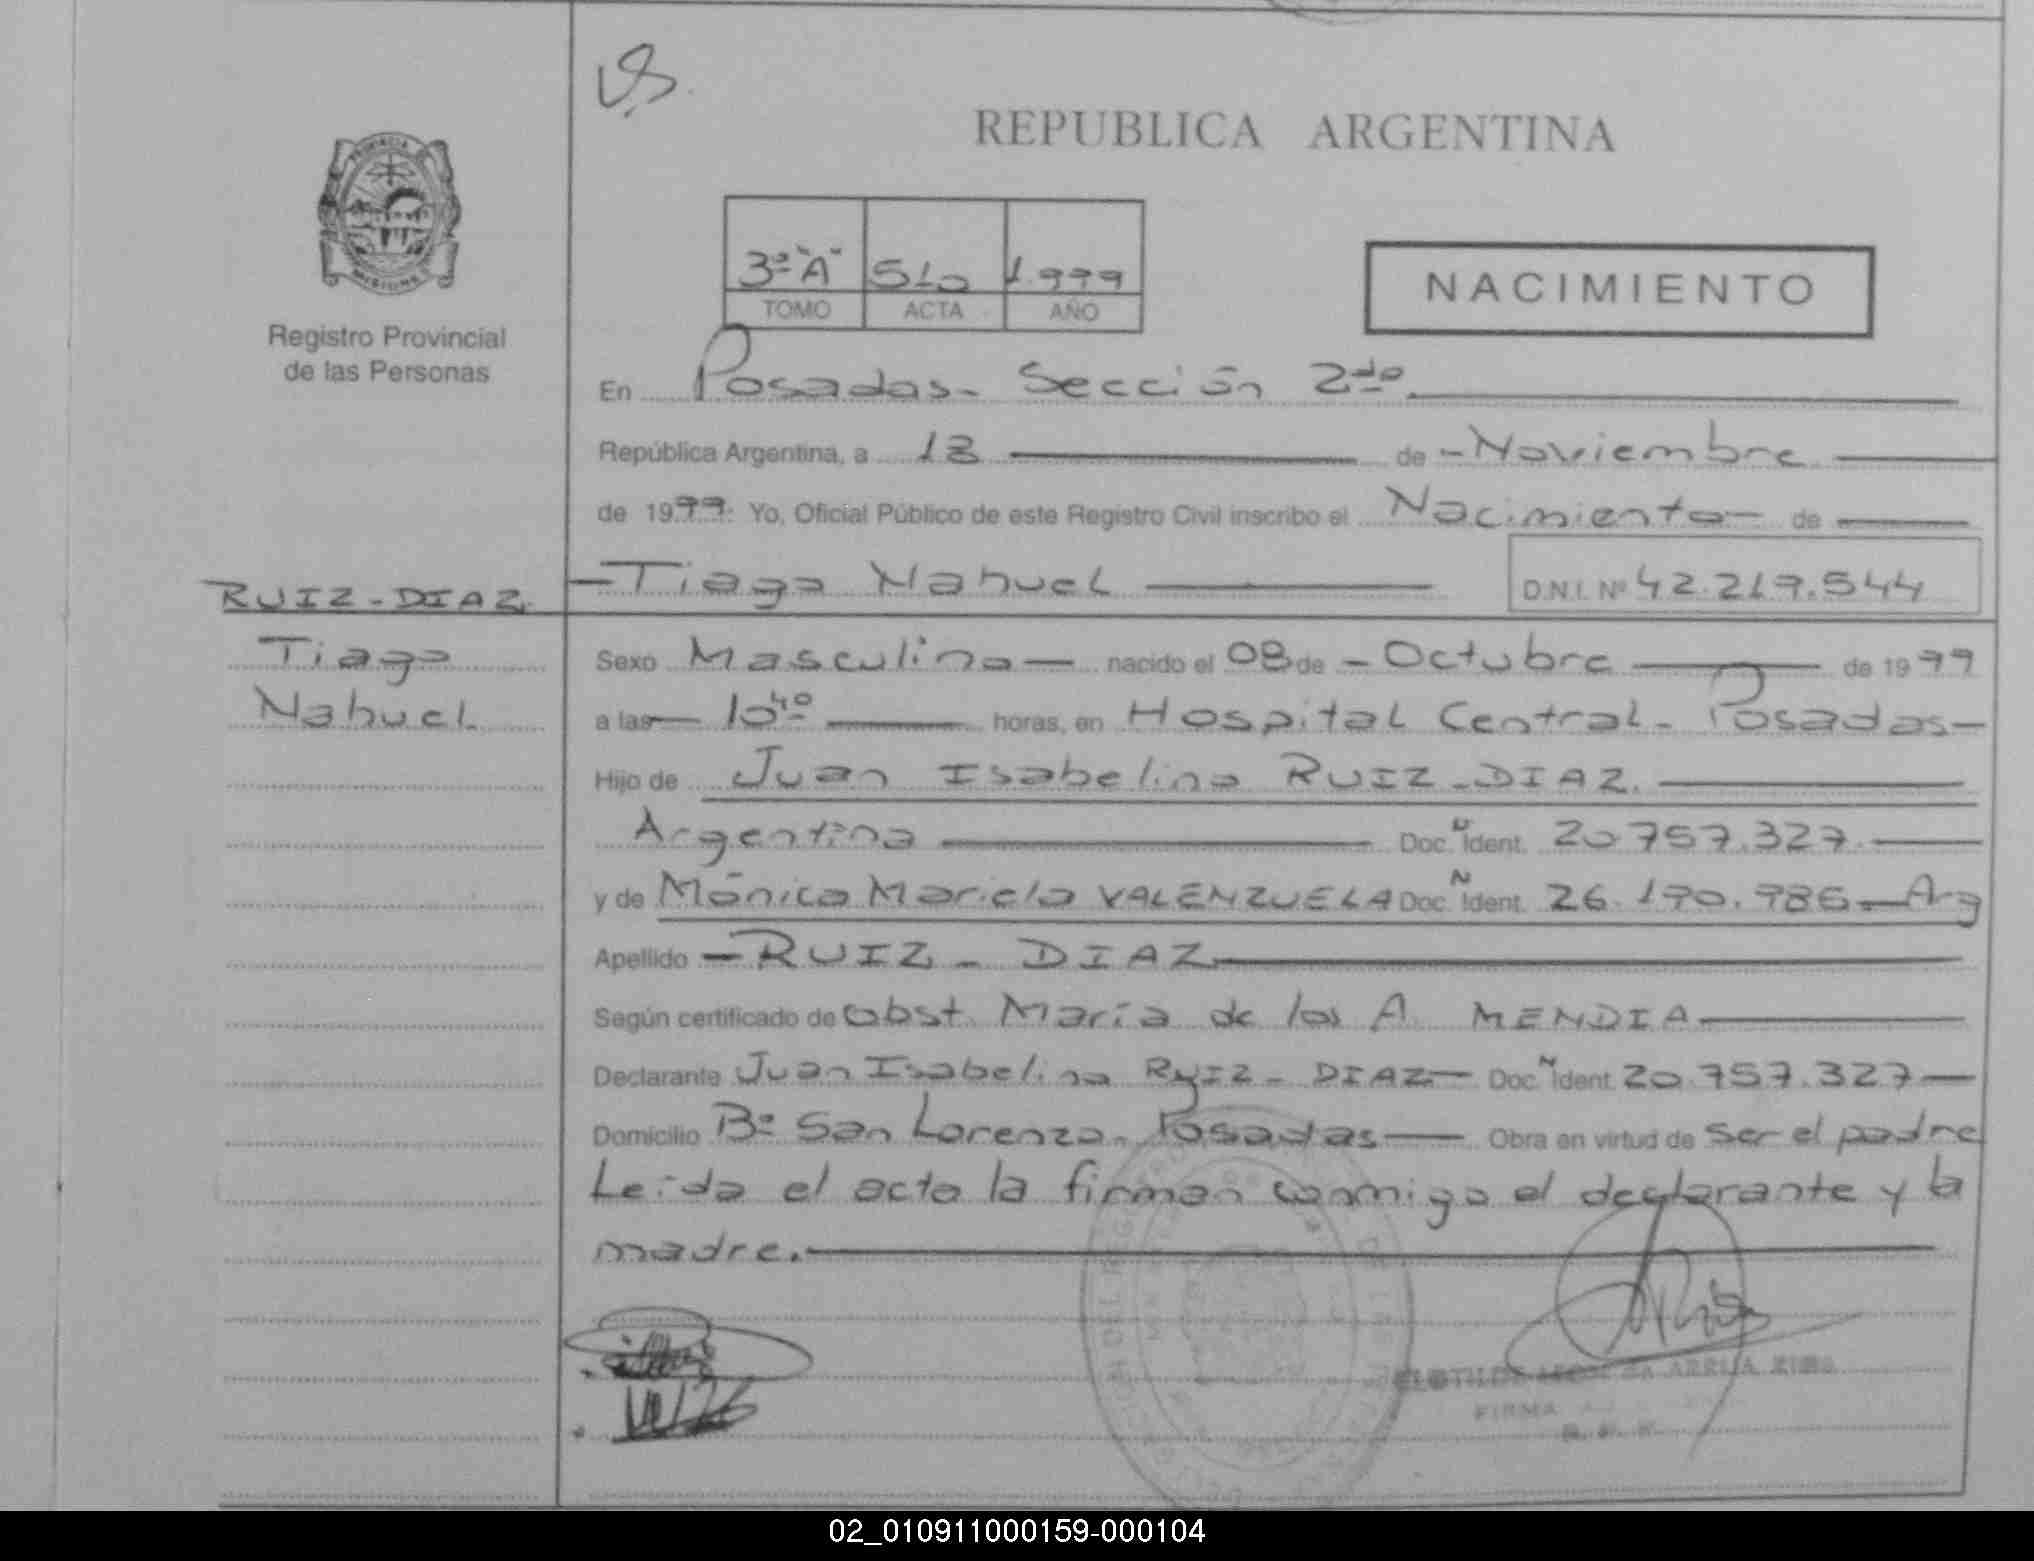 REPUBLICA ARGENTINA
PROVINCIA DE MISIONES
Registro Provincial
de las Personas
3º "A" 510 1.999
TOMO ACTA AÑO
NACIMIENTO
En Posadas - Sección 2da
República Argentina, a 18 de - Noviembre
de 1999. Yo, Oficial Público de este Registro Civil inscribo el Nacimiento - de
- Tiago Nahuel D.N.I. Nº 42.217.544
RUIZ - DIAZ
Tiago
Nahuel
Sexo Masculino - nacido el 08 de - Octubre de 1999
a las 10 40 horas, en Hospital Central - Posadas -
Hijo de Juan Isabelino RUIZ - DIAZ.
Argentino Doc. N Ident. 20.757.327.
y de Mónica Mariela VALENZUELA Doc. N Ident. 26.190.986 - Arg
Apellido - RUIZ - DIAZ
Según certificado de obst. María de los A. MENDIA
Declarante Juan Isabelino RUIZ - DIAZ - Doc. N Ident. 20.757.327 -
Domicilio Bº San Lorenzo - Posadas - Obra en virtud de ser el padre
Leída el acta la firman conmigo el declarante y la
madre.
FIRMA
02_010911000159-000104